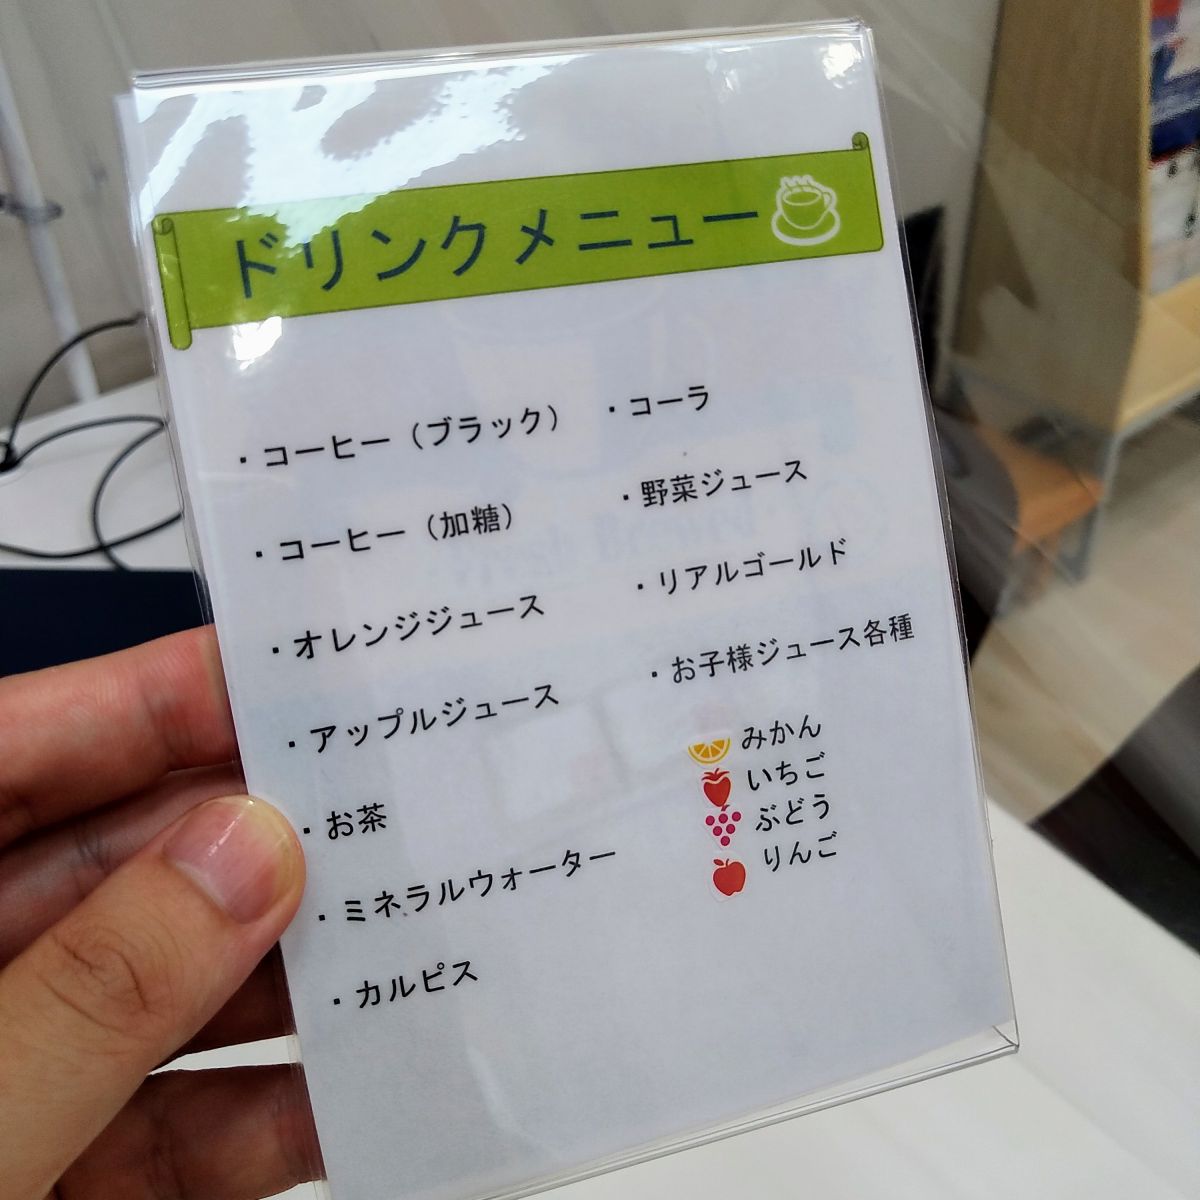 ドリンクメニュー
・コーヒー（ブラック）
・コーヒー（加糖）
・オレンジジュース
・アップルジュース
・お茶
・ミネラルウォーター
・カルピス
・コーラ
・野菜ジュース
・リアルゴールド
・お子様ジュース各種
みかん
いちご
ぶどう
りんご